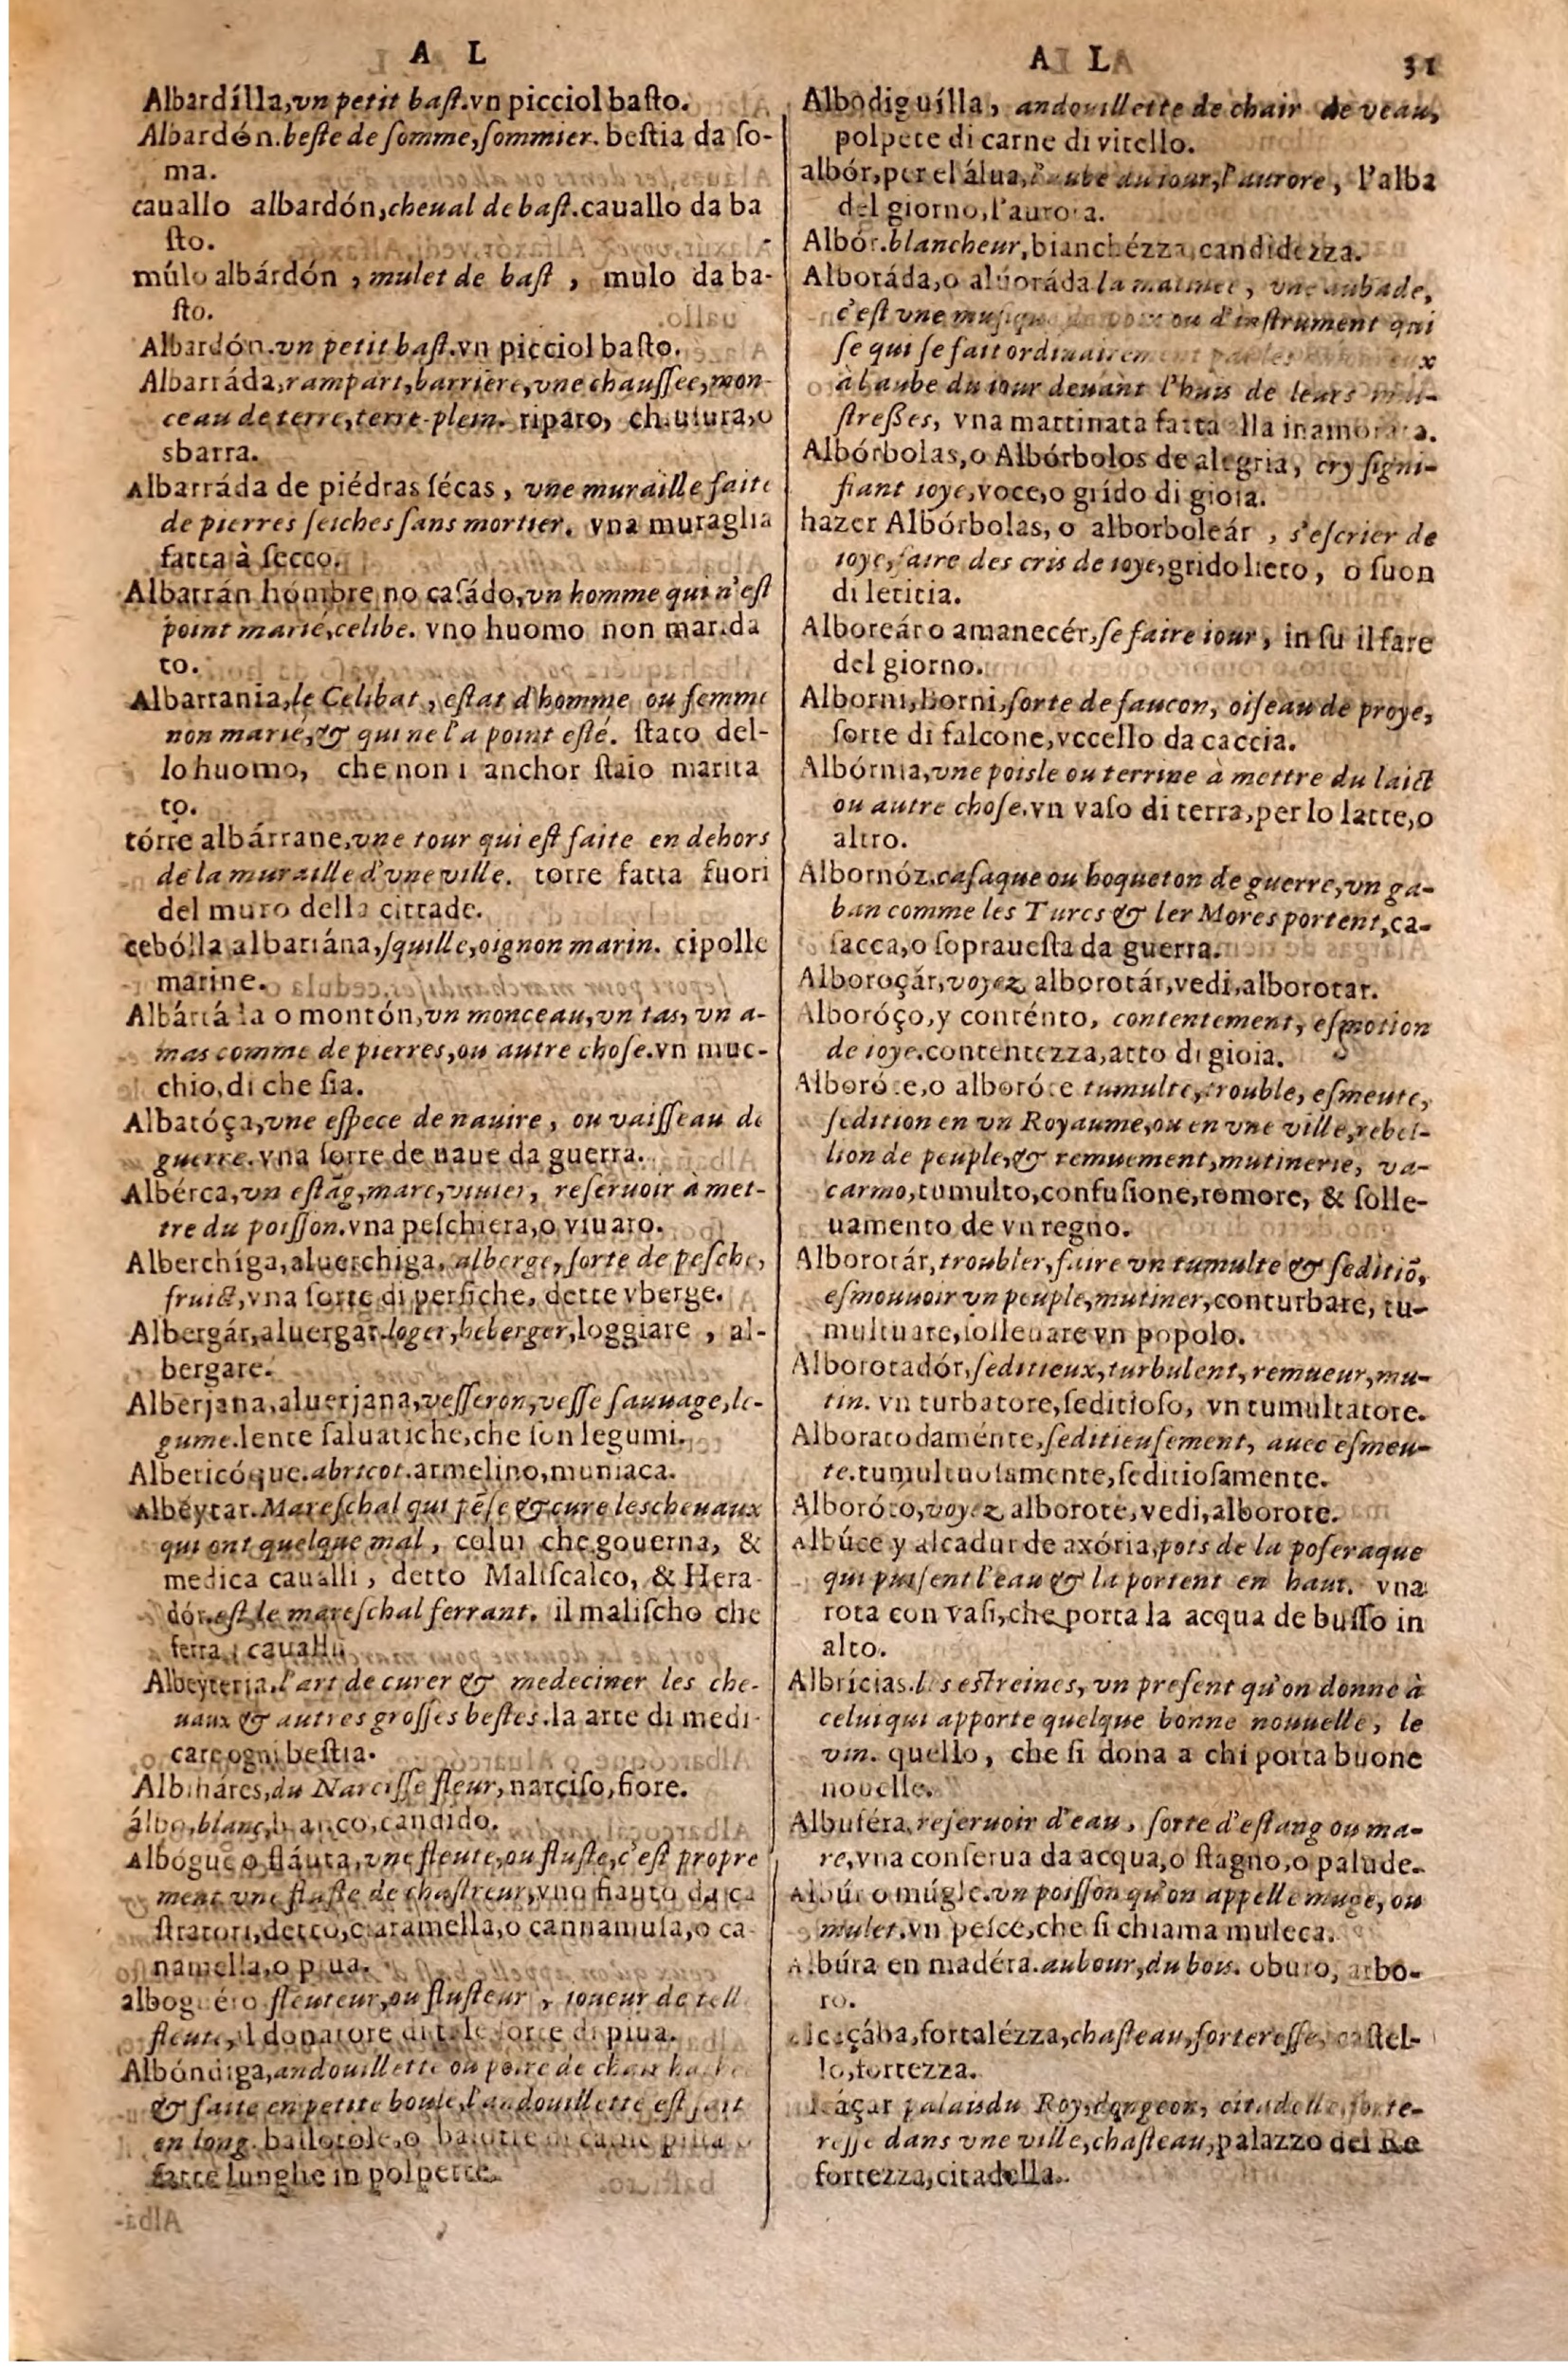 A L
Albardílla,vn petit baſt.vn picciol baſto.
Albardón.beſte de ſomme,ſommier. beſtia da ſo-
ma.
cauallo albardón,cheual de baſt.cauallo da ba
ſto.
múlo albárdón , mulet de baſt , mulo da ba-
ſto.
Albardón.vn petit baſt.vn picciol baſto.
Albarráda,rampart,barriere,vne chauſſee,mon-
ceau de terre,terre-plein. riparo, chiuſura,o
sbarra.
Albarráda de piédras ſécas , vne muraille faite
de pierres ſeiches ſans mortier. vna muraglia
fatta à ſecco.
Albarrán hómbre no caſádo,vn homme qui n'eſt
point marié,celibe. vno huomo non mar.da
to.
Albarrania,le Celibat , eſtat d'homme ou femme
non marié,& qui ne l'a point eſté. ſtato del-
lo huomo, che non i anchor ſtato marita
to.
tórre albárrane,vne tour qui eſt faite en dehors
de la muraille d'vne ville. torre fatta fuori
del muro della cittade.
cebólla albarrána,ſquille,oignon marin. cipolle
marine.
o montón,vn monceau,vn tas, vn a-
mas comme de pierres,ou autre choſe.vn muc-
chio,di che ſia.
Albatóça,vne eſpece de nauire , ou vaiſſeau de
guerre.vna ſorte de naue da guerra.
Albérca,vn eſtãg,mare,viuier, reſeruoir à met-
tre du poiſſon.vna peſchiera,o viuaro.
Alberchíga,aluerchiga, alberge,ſorte de peſche,
fruict,vna ſorte di perſiche, dette vberge.
Albergár,aluergar.loger,heberger,loggiare , al-
bergare.
Alberjana,aluerjana,veſſeron,veſſe ſauuage,le-
gume.lente ſaluatiche,che ſon legumi.
Albericóque.abricot.armelino,muniaca.
Albéytar.Mareſchal qui pẽſe & cure les cheuaux
qui ont quelque mal , colui che gouerna, &
medica caualli , detto Maliſcalco, & Hera-
dór.eſt le mareſchal ferrant. il maliſcho che
ferra i caualli
Albeyteria.l'art de curer & medeciner les che-
uaux & autres groſſes beſtes.la arte di medi-
care ogni beſtia.
Albihares,du Narciſſe fleur, narciſo,fiore.
álbo,blanc,bianco,candido.
Albógue o fláuta,vne fleute,ou fluſte,c'eſt propre
ment vne fluſte de chaſtreur,vno fiauto da ca
ſtratori,detto,ciaramella,o cannamuſa,o ca-
namella,o piua.
alboguéro fleuteur,ou fluſteur , ioueur de tell
fleute, il donatore di tale ſorte di piua.
Albóndiga,andouillette ou de chair
& faite en petite boule,l'andouillette eſt fait
en long. ballotole,o balotte di carne piſta o
fatte lunghe in polpette.
A L
31
Albodiguílla, andouillette de chair de veau,
polpete di carne di vitello.
albór,por el álua,l'aube du iour,l'aurore , l'alba
del giorno,l'aurora.
Albór.blancheur,bianchézza,candidezza.
Alboráda,o alúoráda la matinee , vne aubade,
c'eſt vne muſique de voix ou d'inſtrument qui
ſe qui ſe fait ordinairement par les
à l'aube du iour deuant l'huis de leurs mai-
ſtreßes, vna mattinata fatta alla inamorata.
Albórbolas,o Albórbolos de alegria, cry ſigni-
fiant ioye,voce,o grído di gioia.
hazer Albórbolas, o alborboleár , s'eſcrier de
ioye,faire des cris de ioye,grido lieto, o ſuon
di letitia.
Alboreár o amanecér,ſe faire iour, in ſu il fare
del giorno.
Alborni,borni,ſorte de faucon, oiſeau de proye,
ſorte di falcone,vccello da caccia.
Albórnia,vne poisle ou terrine à mettre du laict
ou autre choſe.vn vaſo di terra,per lo latte,o
altro.
Albornóz.caſaque ou hoqueton de guerre,vn ga-
ban comme les Turcs & ler Mores portent,ca-
ſacca,o ſopraueſta da guerra.
Alboroçár,voyez alborotár,vedi,alborotar.
Alboróço,y conténto, contentement, eſmotion
de ioye.contentezza,atto di gioia.
Alboróte,o alboróte tumulte,trouble, eſmeute,
ſedition en vn Royaume,ou en vne ville,rebel-
lion de peuple,& remuement,mutinerie, va-
carmo,tumulto,confuſione,romore, & ſolle-
uamento de vn regno.
Alborotár,troubler,faire vn tumulte & ſeditiõ,
eſmouuoir vn peuple,mutiner,conturbare, tu-
multuare,ſolleuare vn popolo.
Alborotadór,ſeditieux,turbulent,remueur,mu-
tin. vn turbatore,ſeditioſo, vn tumultatore.
Alboratodaménte,ſeditieuſement, auec eſmeu-
te.tumultuoſamente,ſeditioſamente.
Alboróto,voyez alborote,vedi,alborote.
Albúce y alcadur de axória,pots de la poſeraque
qui puiſent l'eau & la portent en haut. vna
rota con vaſi,che porta la acqua de buſſo in
alto.
Albrícias.les eſtreines, vn preſent qu'on donne à
celuiqui apporte quelque bonne nouuelle, le
vin. quello, che ſi dona a chi porta buone
nouelle.
Albuféra,reſeruoir d'eau, ſorte d'eſtang ou ma-
re,vna conſerua da acqua,o ſtagno,o palude.
Albúr o múgle.vn poiſſon qu'on appelle muge, ou
mulet.vn peſce,che ſi chiama muleca.
Albúra en madéra.aubour,du bois. oburo, arbo-
ro.
alcaçába,fortalézza,chaſteau,fortereſſe, caſtel-
lo,fortezza.
alcáçar palais du Roy,dongeon, citadelle,forte-
reſſe dans vne ville,chaſteau,palazzo del Re
fortezza,citadella.